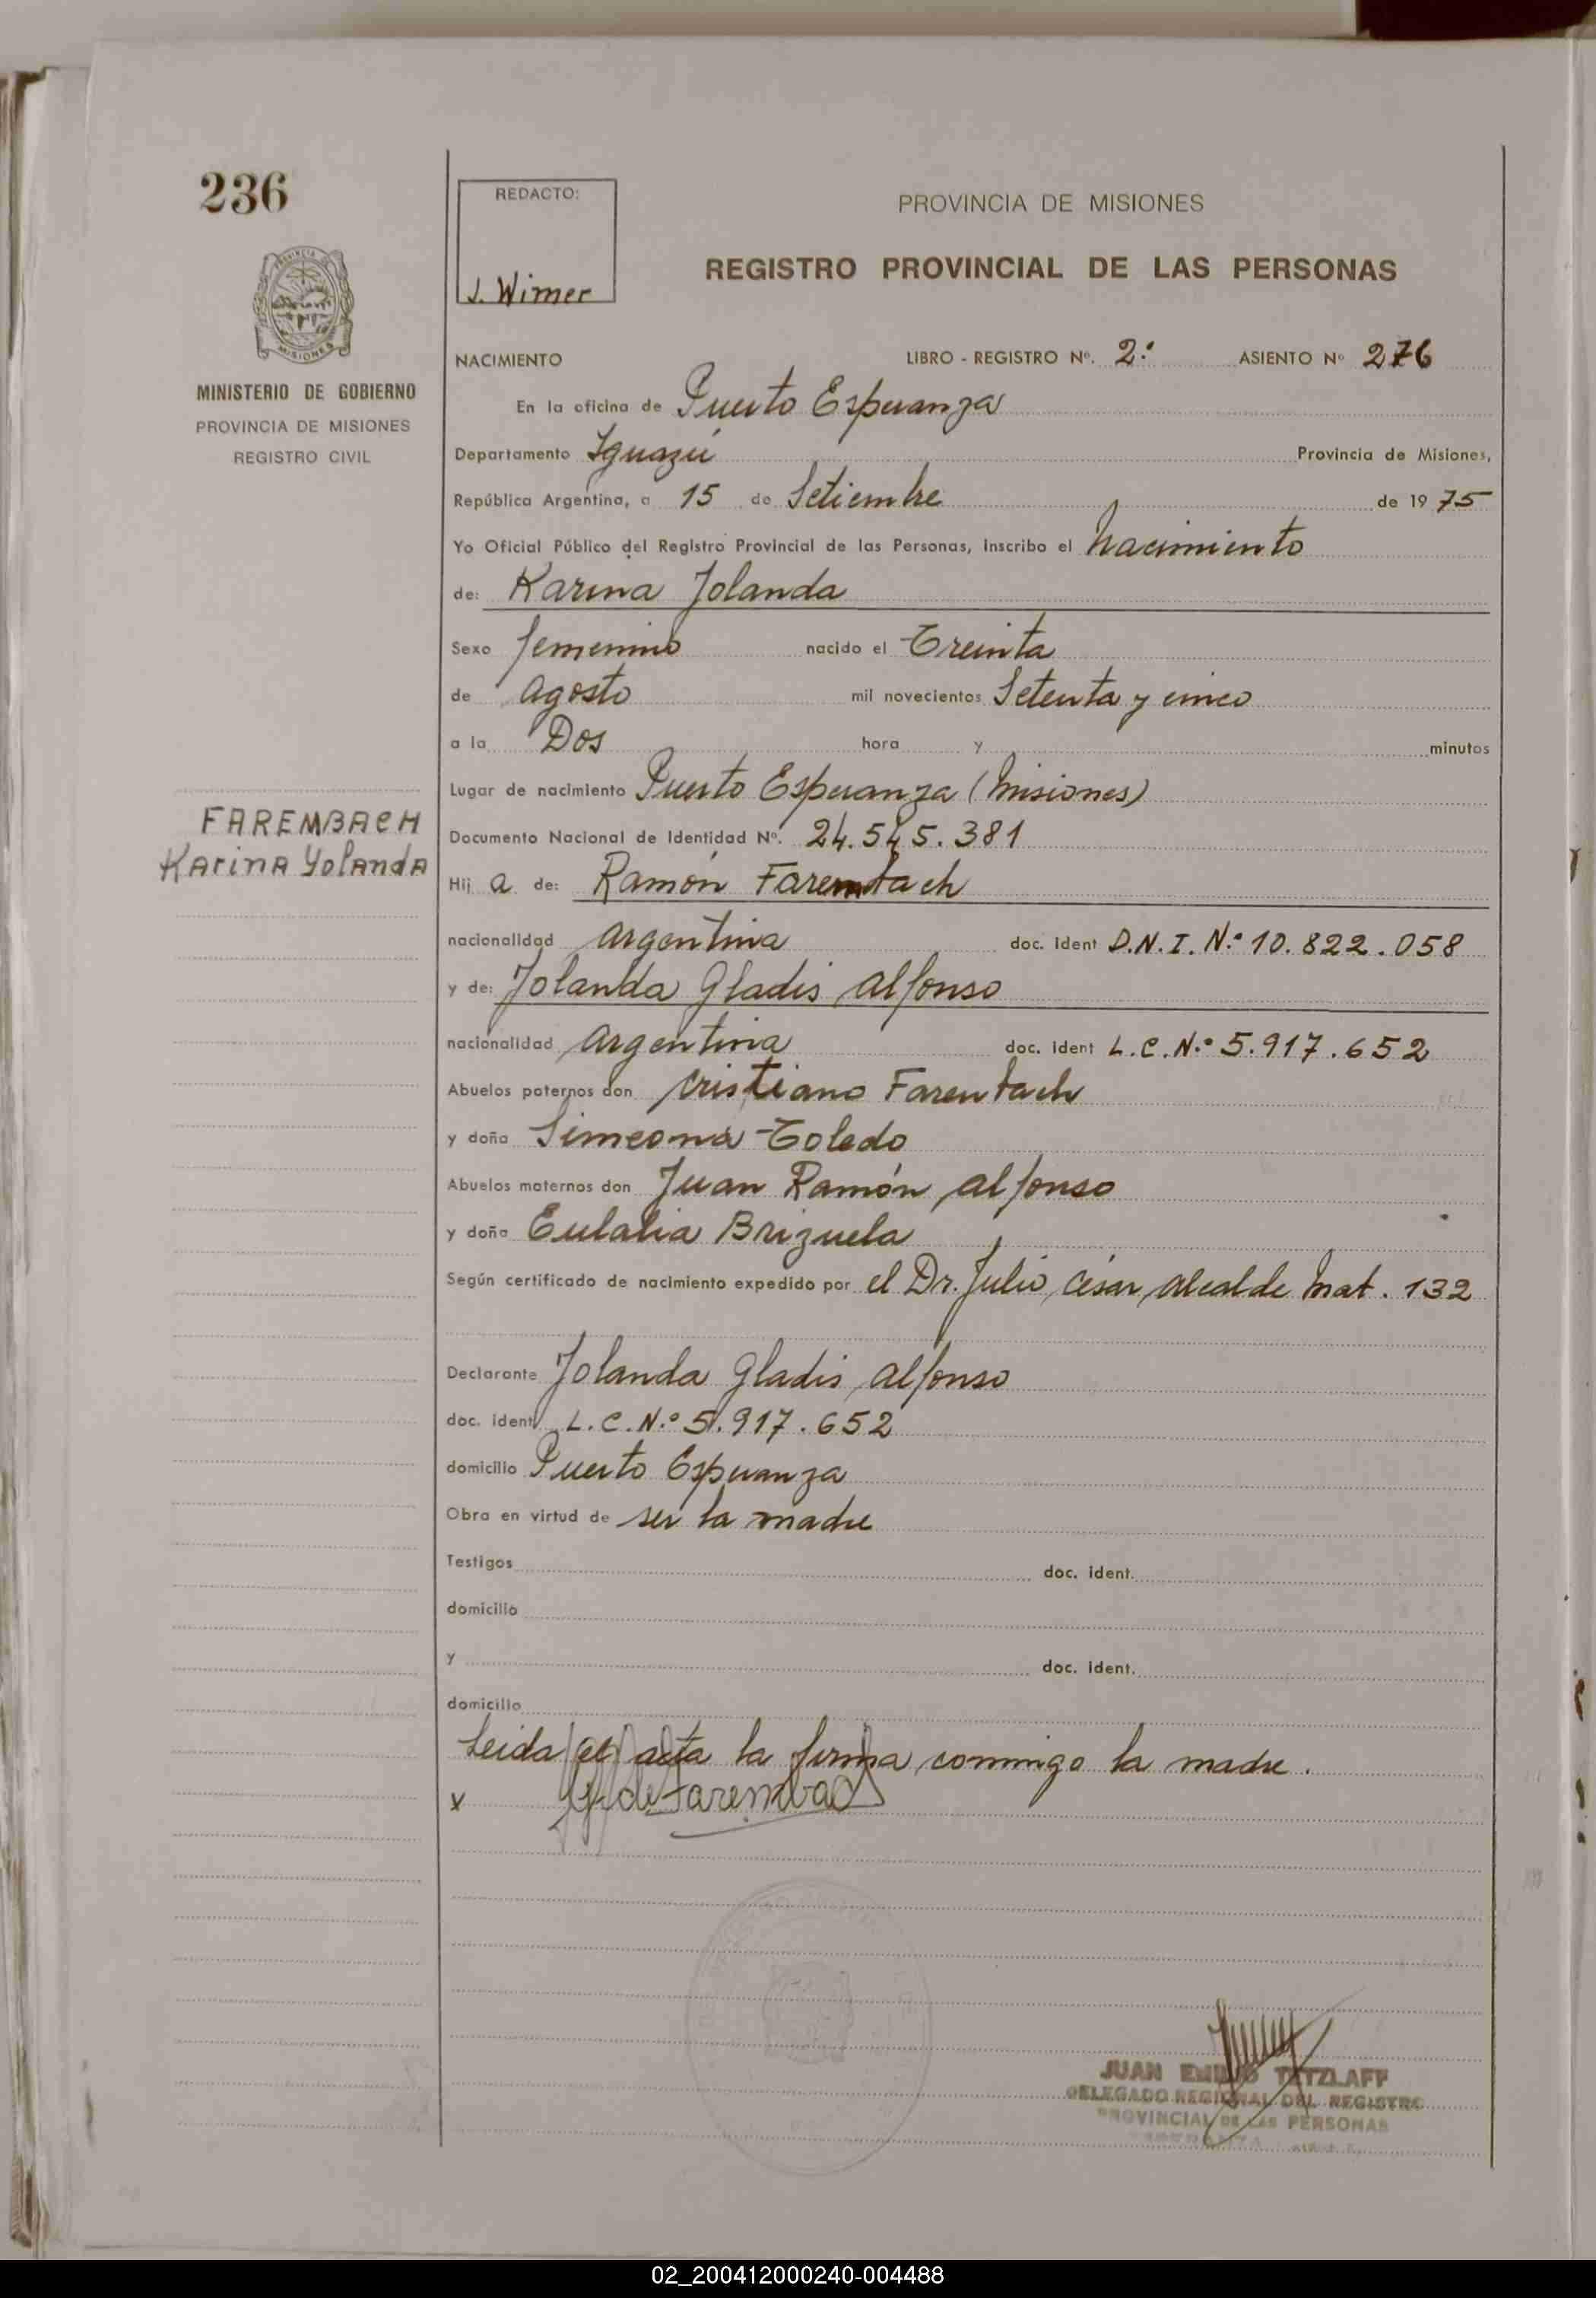 236
REDACTO:
J. Wimer
PROVINCIA DE MISIONES
REGISTRO PROVINCIAL DE LAS PERSONAS
PROVINCIA DE
MISIONES
MINISTERIO DE GOBIERNO
PROVINCIA DE MISIONES
REGISTRO CIVIL
NACIMIENTO LIBRO - REGISTRO Nº. 2º ASIENTO Nº 276
En la oficina de Puerto Esperanza
Departamento Iguazú Provincia de Misiones,
República Argentina, a 15 de Setiembre de 1975
Yo Oficial Público del Registro Provincial de las Personas, inscribo el Nacimiento
de: Karina Yolanda
Sexo femenino nacido el Treinta
de Agosto mil novecientos Setenta y cinco
a la Dos hora y minutos
Lugar de nacimiento Puerto Esperanza (Misiones)
FAREMBACH
Karina Yolanda
Documento Nacional de Identidad Nº. 24.545.381
Hij a de: Ramón Farembach
nacionalidad Argentina doc. ident D.N.I. Nº 10.822.058
y de: Yolanda Gladis Alfonso
nacionalidad Argentina doc. ident L.C. Nº 5.917.652
Abuelos paternos don Cristiano Farenbach
y doña Simeona Toledo
Abuelos maternos don Juan Ramón Alfonso
y doña Eulalia Brizuela
Según certificado de nacimiento expedido por el Dr. Julio César Alcalde Mat. 132
Declarante Yolanda Gladis Alfonso
doc. ident L.C. Nº 5.917.652
domicilio Puerto Esperanza
Obra en virtud de ser la madre
Testigos doc. ident.
domicilio
y doc. ident.
domicilio
Leida el acta la firma conmigo la madre.
x de Farembach
JUAN EMILIO TETZLAFF
DELEGADO REGIONAL DEL REGISTRO
PROVINCIAL DE LAS PERSONAS
02_200412000240-004488